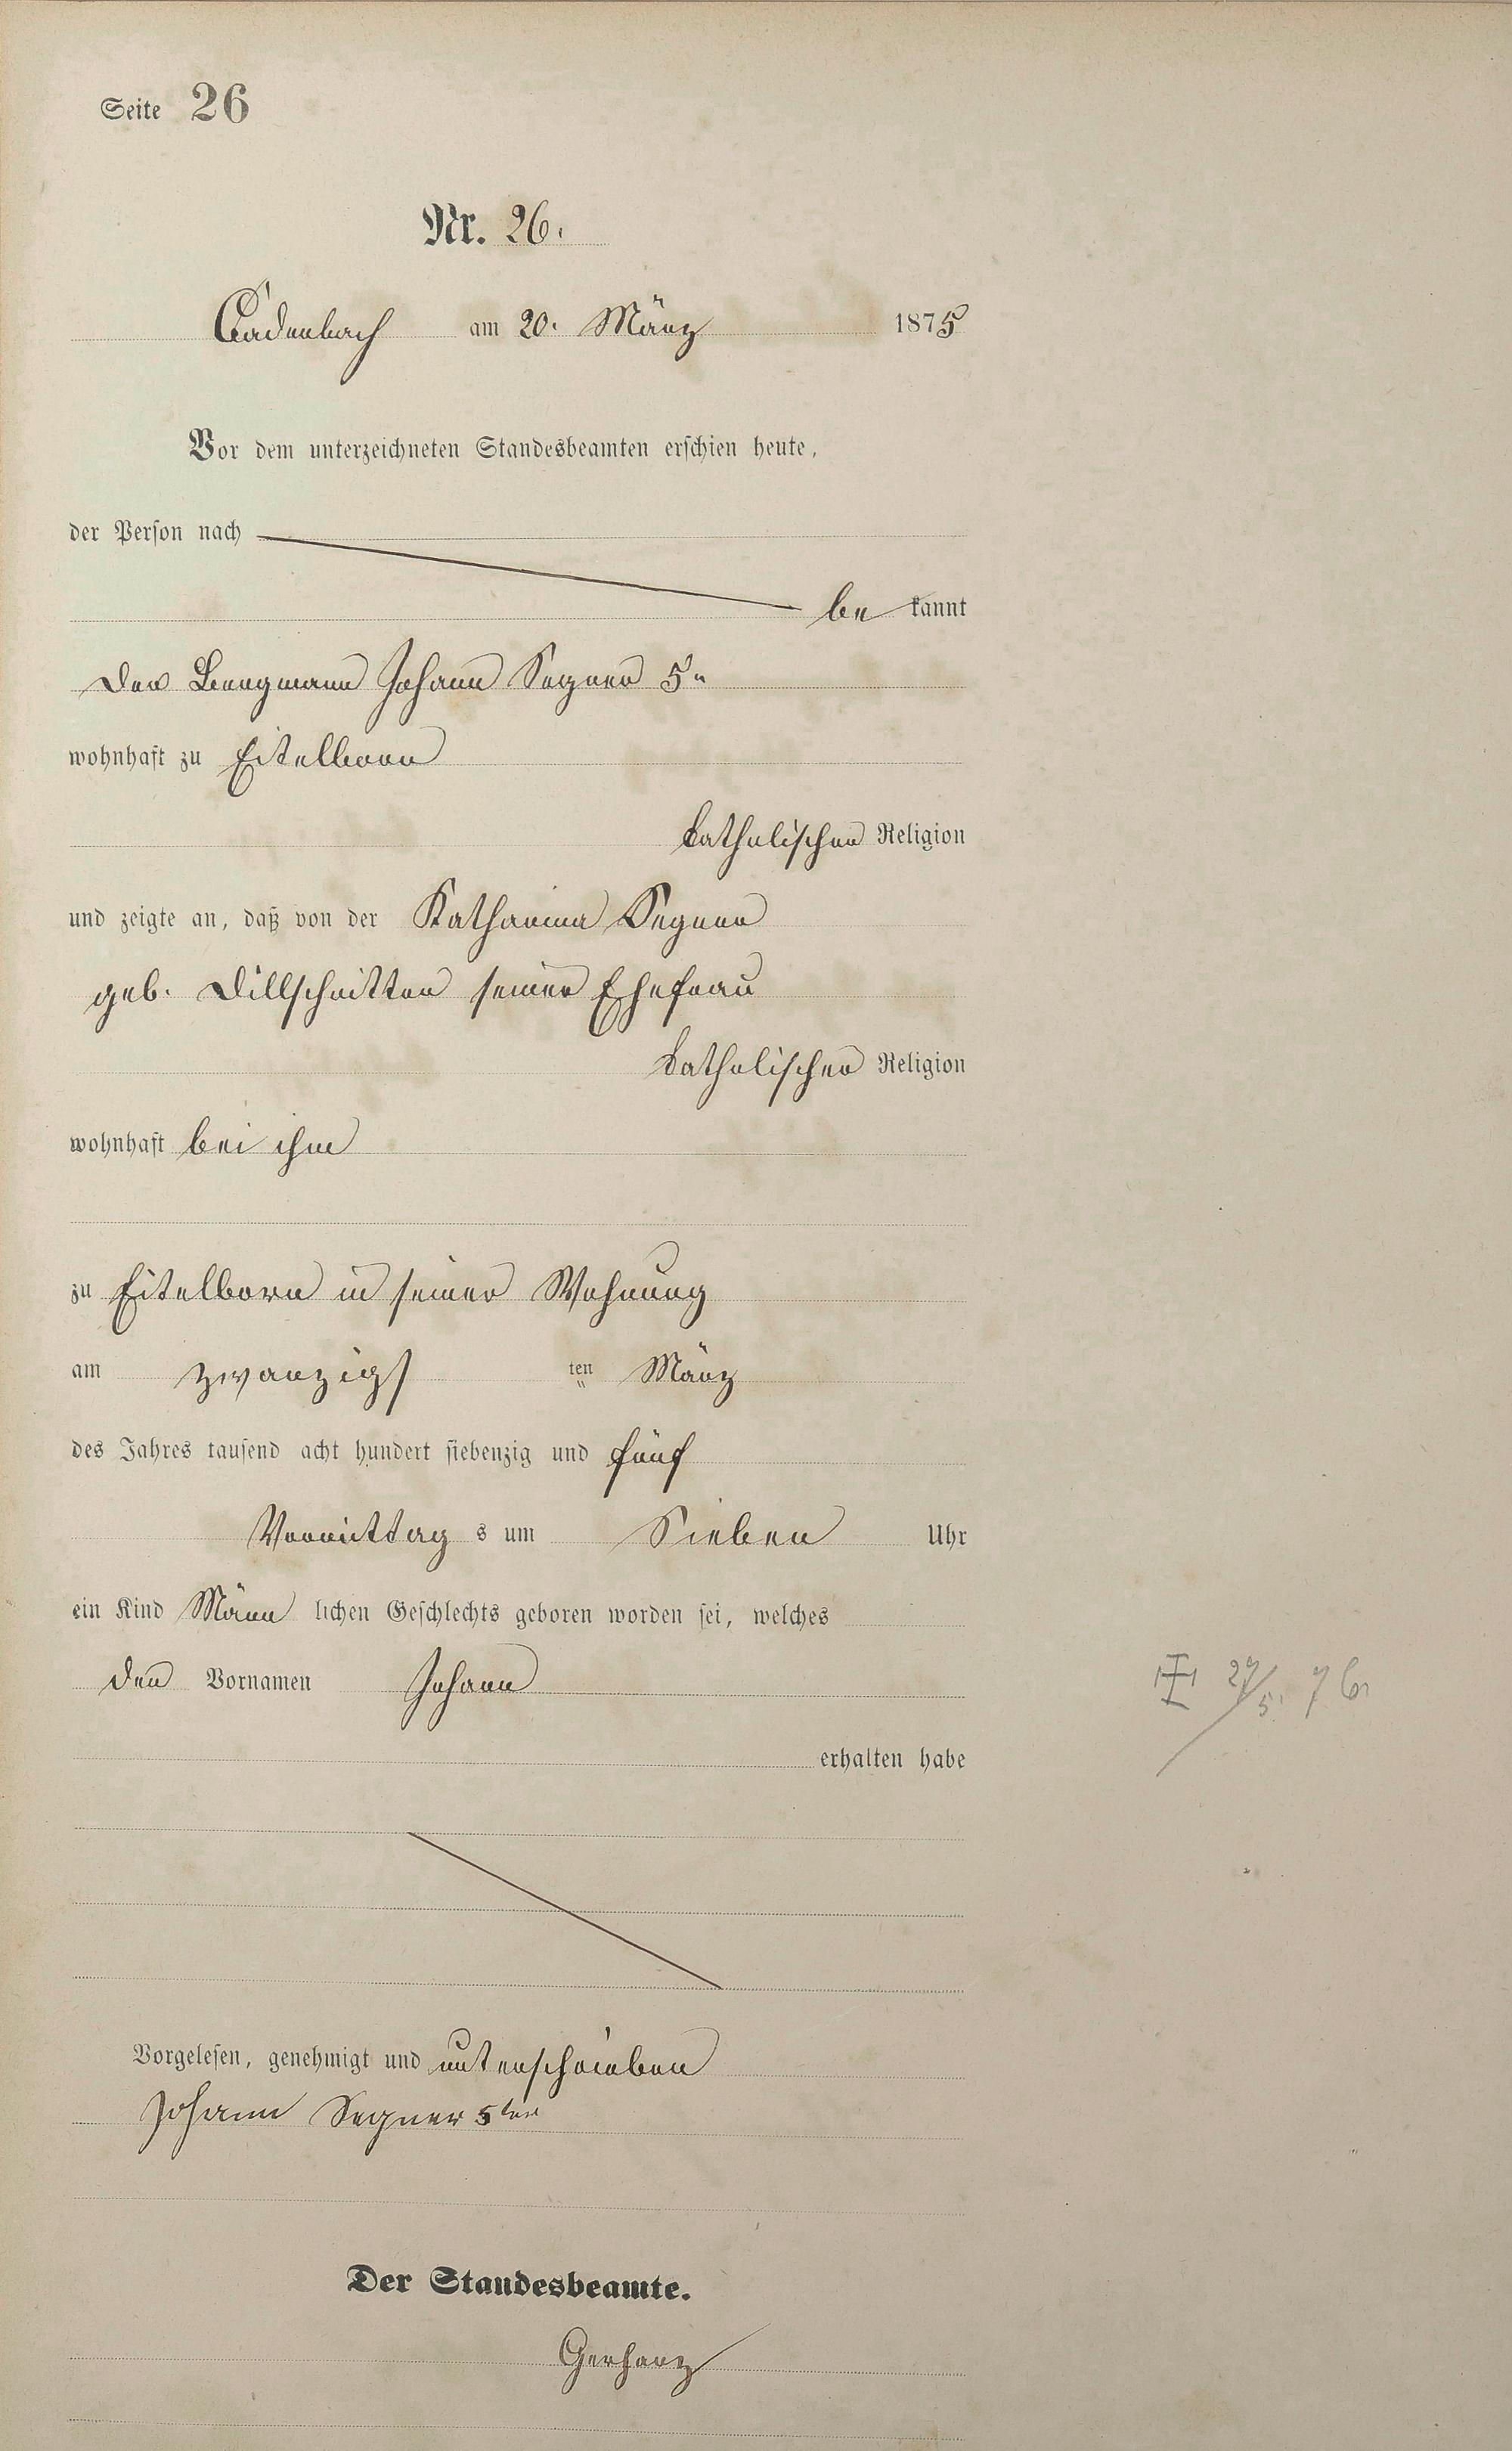 Seite 26
Nr. 26.
Cadenbach am 20. März 1875
Vor dem unterzeichneten Standesbeamten erschien heute,
der Person nach
be kannt
der Bergmann Johann Segner 5r
wohnhaft zu Eitelborn
katholischer Religion
und zeigte an, daß von der Katharina Segner
geb. Dillschnitter seiner Ehefrau
katholischer Religion
wohnhaft bei ihm
zu Eitelborn in seiner Wohnung
am zwanzigs ten März
des Jahres tausend acht hundert siebenzig und fünf
Vormittag s um Sieben Uhr
ein Kind Männ lichen Geschlechts geboren worden sei, welches
den Vornamen Johann
27/5. 76
erhalten habe
Vorgelesen, genehmigt und unterschrieben
Johann Segner 5ter
Der Standesbeamte.
Gerharz